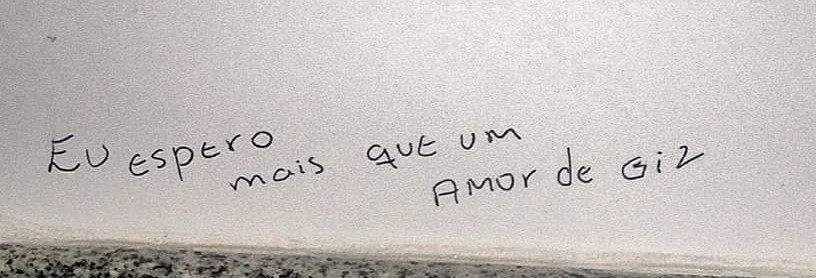 EU espero
mais que um
AMOr de Giz